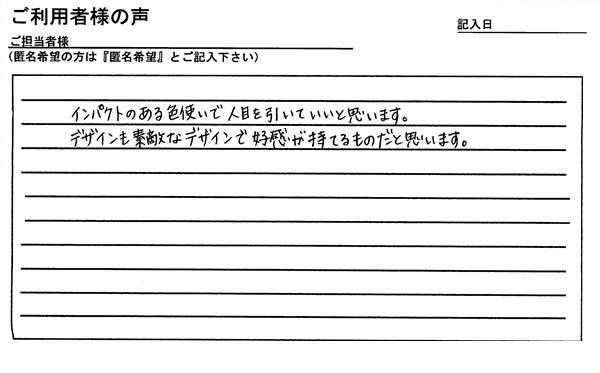 ご利用者様の声
記入日
ご担当者様
(匿名希望の方は『匿名希望』とご記入下さい)
インパクトのある色使いで人目を引いていいと思います。
デザインも素敵なデザインで好感が持てるものだと思います。